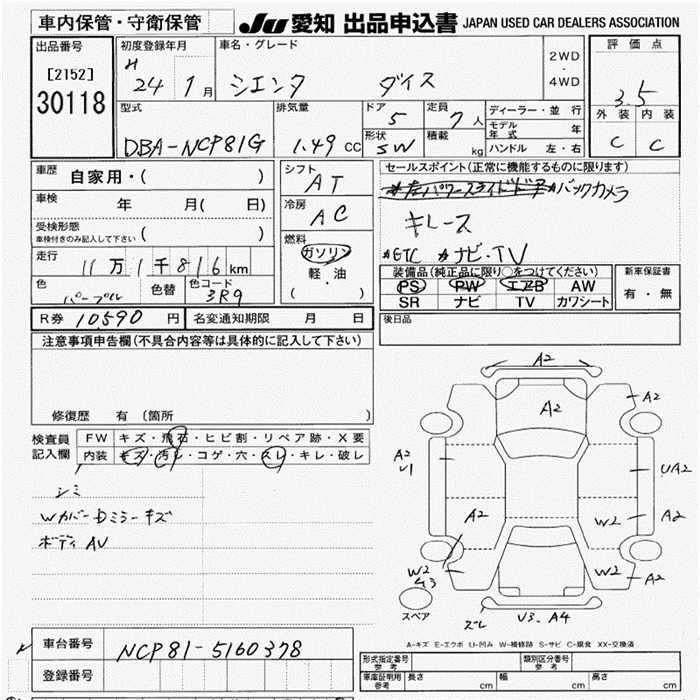 車内保管・守衛保管
JU 愛知 出品申込書 JAPAN USED CAR DEALERS ASSOCIATION
出品番号
[2152]
30118
初度登録年月
H 24 1月
車名・グレード
シエンタ ダイス
2WD
・
4WD
評価点
3.5
外装 内装
C C
型式
DBA-NCP81G
排気量
1.49 CC
ドア
5
定員
7人
形状
SW
積載
kg
ディーラー・並行
モデル年式 年
ハンドル 左・右
車歴
自家用・( )
車検
年 月( 日)
受検形態
車検付きのみ記入して下さい ( )
走行
11万1千816km
色
パープル
色替
色コード
3R9
シフト
AT
冷房
AC
燃料
ガソリン
軽・油
( )
セールスポイント(正常に機能するものに限ります)
バックカメラ
キレース
#ETC #ナビ・TV
装備品(純正品に限り○をつけてください)
PS PW エアB AW
SR ナビ TV カワシート
新車保証書
有・無
R券 10,590 円 名変通知期限 月 日
後日品
注意事項申告欄(不具合内容等は具体的に記入して下さい)
修復歴 有〔箇所 〕
検査員記入欄
FW キズ・飛石・ヒビ割・リペア跡・X要
内装 キズ・汚レ・コゲ・穴・スレ・キレ・破レ
シミ
Wカバー Dミラーキズ
ボディ AV
A2
A2
A2
A2
U1
UA2
A2
W2
A2
W2
A2
スペア
ズレ
U3. A4
A-キズ E-エクボ U-凹み W-補修跡 S-サビ C-腐食 XX-交換済
車台番号
NCP81-5160378
登録番号
形式指定番号
参考
類別区分番号
参考
車庫証明用
参考
長さ cm 幅 cm 高さ cm